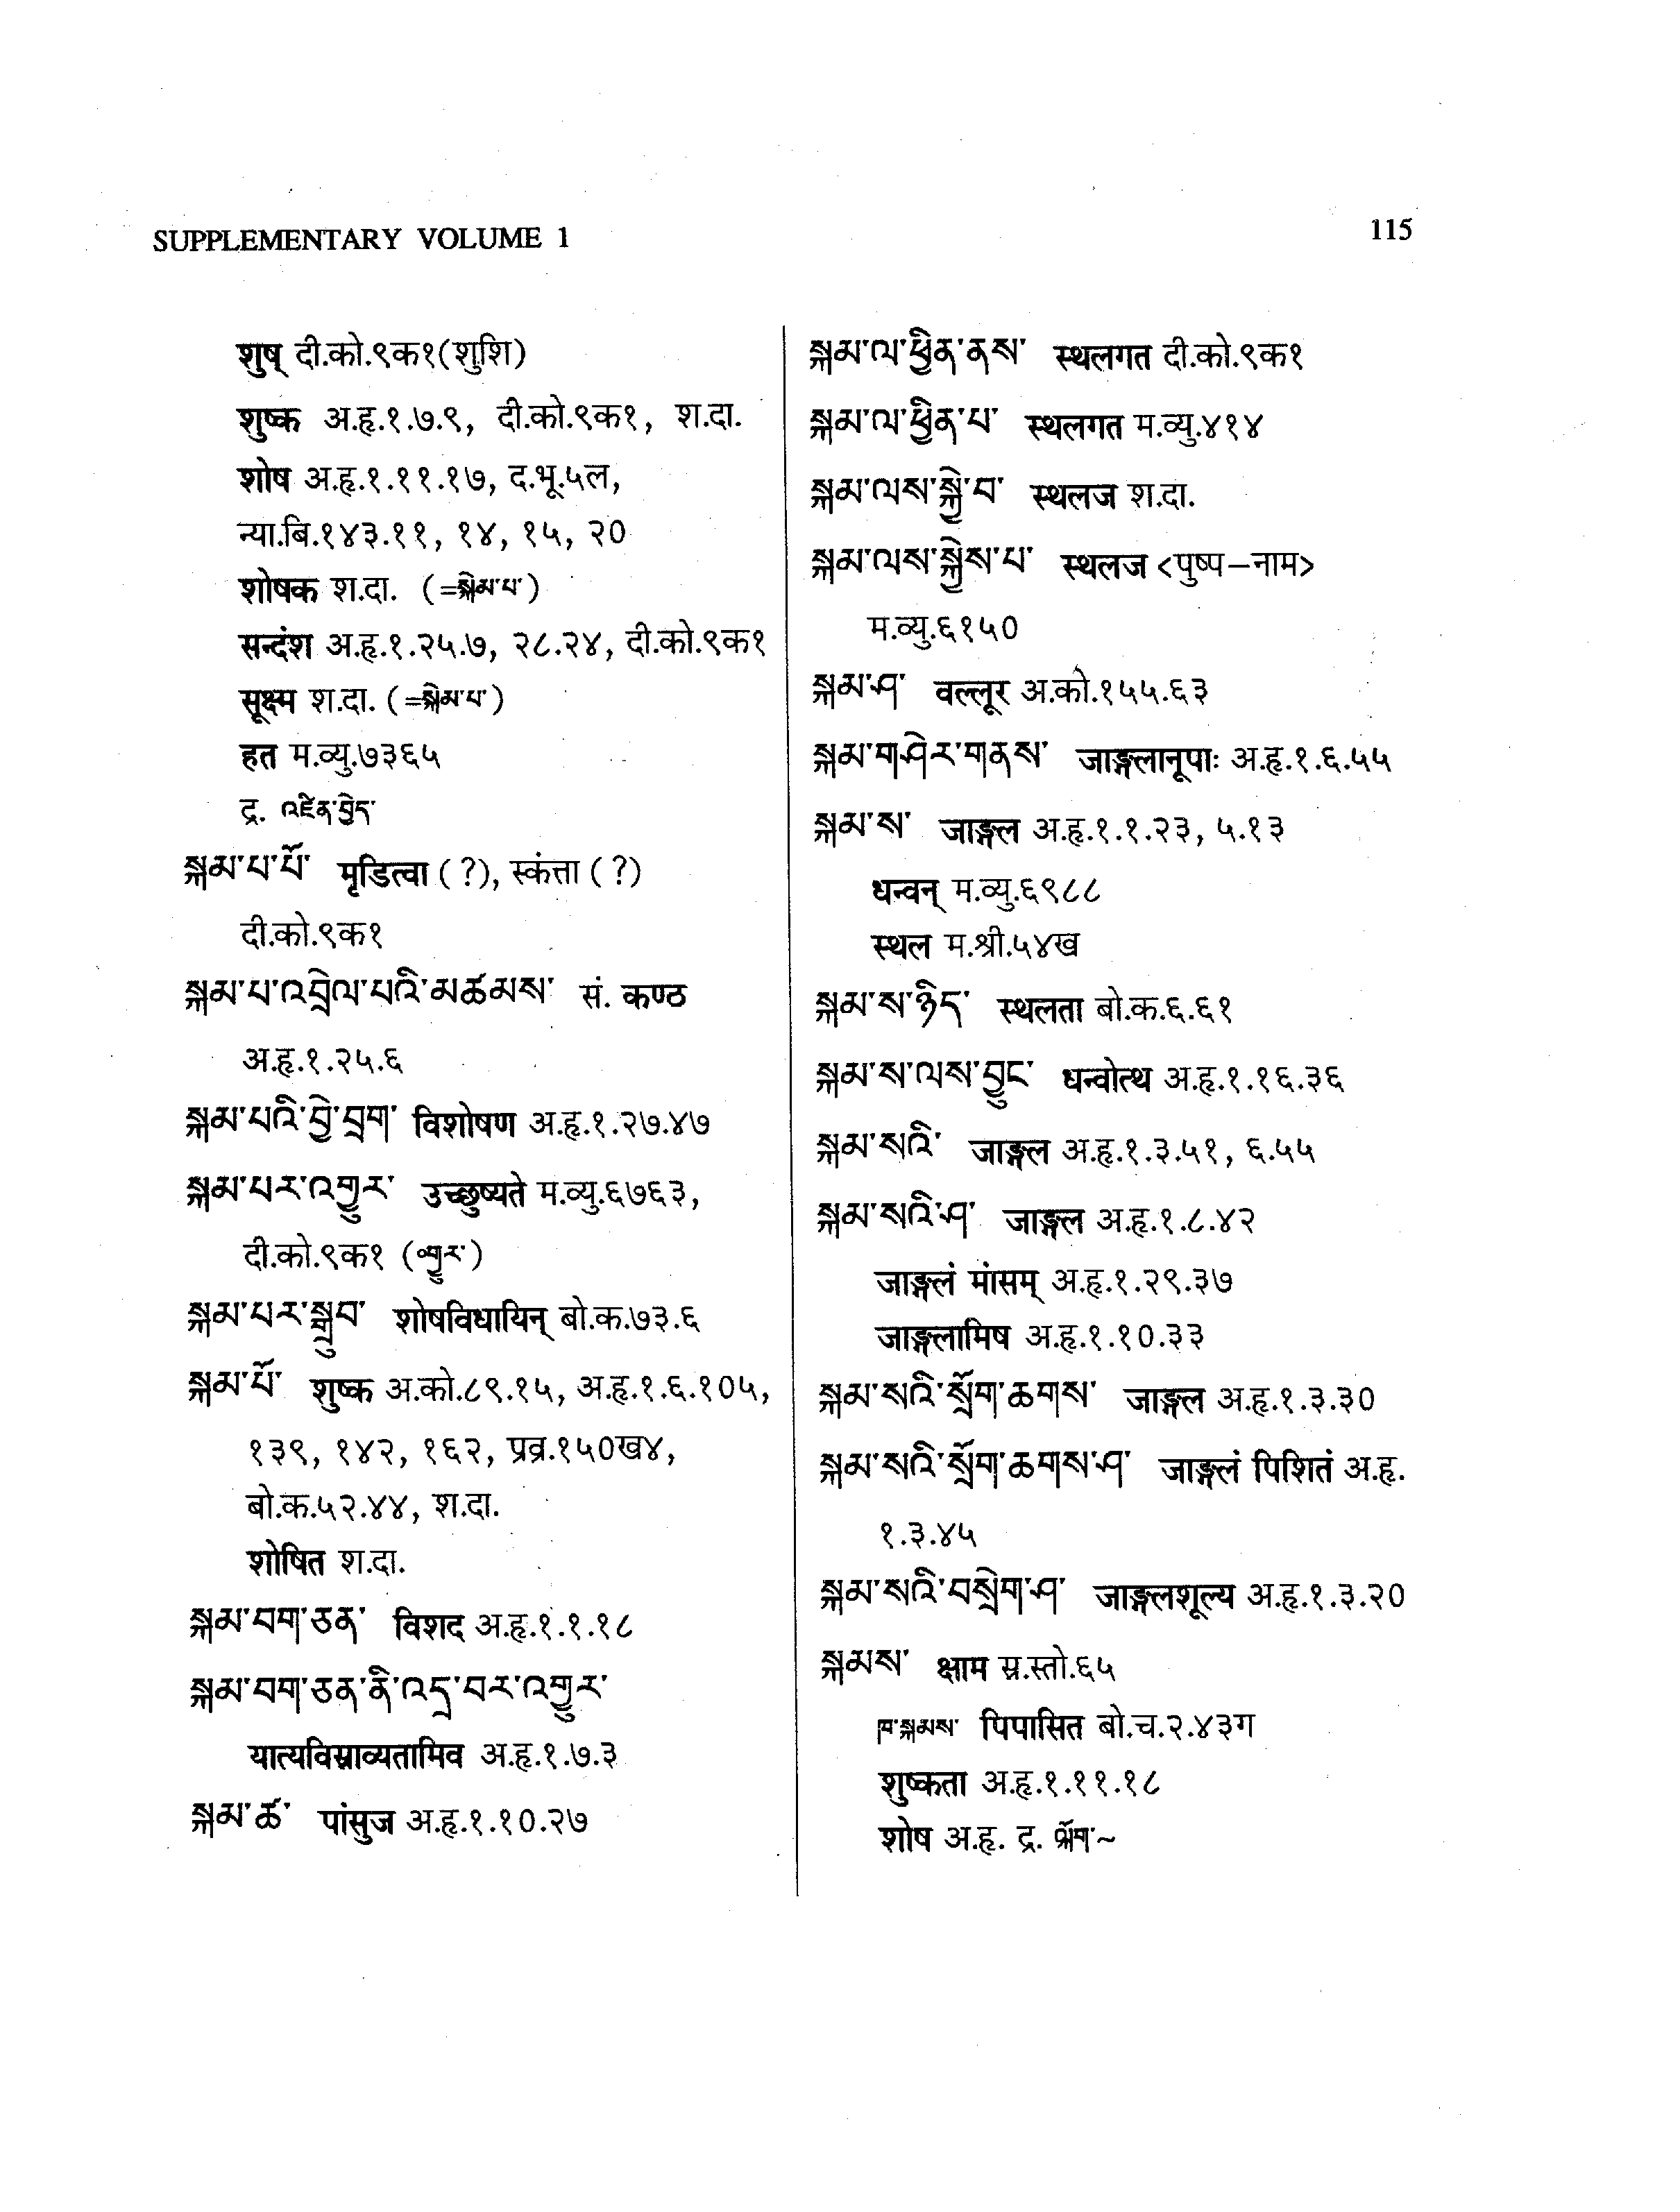 SUPPLEMENTARY VOLUME 1
115
शुष् दी.को.९क१(शुशि)
शुष्क अ.हृ.१.७.९, दी.को.९क१, श.दा.
शोष अ.हृ.१.११.१७, द.भू.५ल,
न्या.बि.१४३.११, १४, १५, २०
शोषक श.दा. (=སྐེམ་པ་)
सन्दंश अ.हृ.१.२५.७, २८.२४, दी.को.९क१
सूक्ष्म श.दा. (=སྐེམ་པ་)
हत म.व्यु.७३६५
द्र. འཛིན་བྱེད་
སྐམ་པ་པོ་ मृडित्वा (?), स्कंत्ता (?)
दी.को.९क१
སྐམ་པ་འབྲེལ་པའི་མཚམས་ सं. कण्ठ
अ.हृ.१.२५.६
སྐམ་པའི་བྱེ་བྲག་ विशोषण अ.हृ.१.२७.४७
སྐམ་པར་འགྱུར་ उच्छुष्यते म.व्यु.६७६३,
दी.को.९क१ (॰གྱུར་)
སྐམ་པར་སྒྲུབ་ शोषविधायिन् बो.क.७३.६
སྐམ་པོ་ शुष्क अ.को.८९.१५, अ.हृ.१.६.१०५,
१३९, १४२, १६२, प्रव्र.१५०ख४,
बो.क.५२.४४, श.दा.
शोषित श.दा.
སྐམ་བག་ཅན་ विशद अ.हृ.१.१.१८
སྐམ་བག་ཅན་ནི་འདྲ་བར་འགྱུར་
यात्यविस्राव्यतामिव अ.हृ.१.७.३
སྐམ་ཚ་ पांसुज अ.हृ.१.१०.२७
སྐམ་ལ་ཕྱིན་ནས་ स्थलगत दी.को.९क१
སྐམ་ལ་ཕྱིན་པ་ स्थलगत म.व्यु.४१४
སྐམ་ལས་སྐྱེ་བ་ स्थलज श.दा.
སྐམ་ལས་སྐྱེས་པ་ स्थलज <पुष्प-नाम>
म.व्यु.६१५०
སྐམ་ཤ་ वल्लूर अ.को.१५५.६३
སྐམ་གཤེར་གནས་ जाङ्गलानूपाः अ.हृ.१.६.५५
སྐམ་ས་ जाङ्गल अ.हृ.१.१.२३, ५.१३
धन्वन् म.व्यु.६९८८
स्थल म.श्री.५४ख
སྐམ་ས་ཉིད་ स्थलता बो.क.६.६१
སྐམ་ས་ལས་བྱུང་ धन्वोत्थ अ.हृ.१.१६.३६
སྐམ་སའི་ जाङ्गल अ.हृ.१.३.५१, ६.५५
སྐམ་སའི་ཤ་ जाङ्गल अ.हृ.१.८.४२
जाङ्गलं मांसम् अ.हृ.१.२९.३७
जाङ्गलामिष अ.हृ.१.१०.३३
སྐམ་སའི་སྲོག་ཆགས་ जाङ्गल अ.हृ.१.३.३०
སྐམ་སའི་སྲོག་ཆགས་ཤ་ जाङ्गलं पिशितं अ.हृ.
१.३.४५
སྐམ་སའི་བསྲེག་ཤ་ जाङ्गलशूल्य अ.हृ.१.३.२०
སྐམས་ क्षाम स्र.स्तो.६५
ཁ་སྐམས་ पिपासित बो.च.२.४३ग
शुष्कता अ.हृ.१.११.१८
शोष अ.हृ. द्र. ~